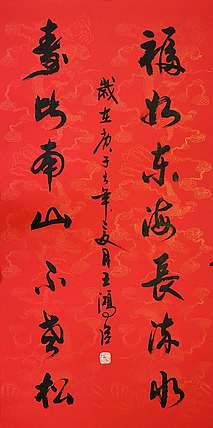 福如东海長流水
壽比南山不老松
歲在庚子之年夏月王鴻